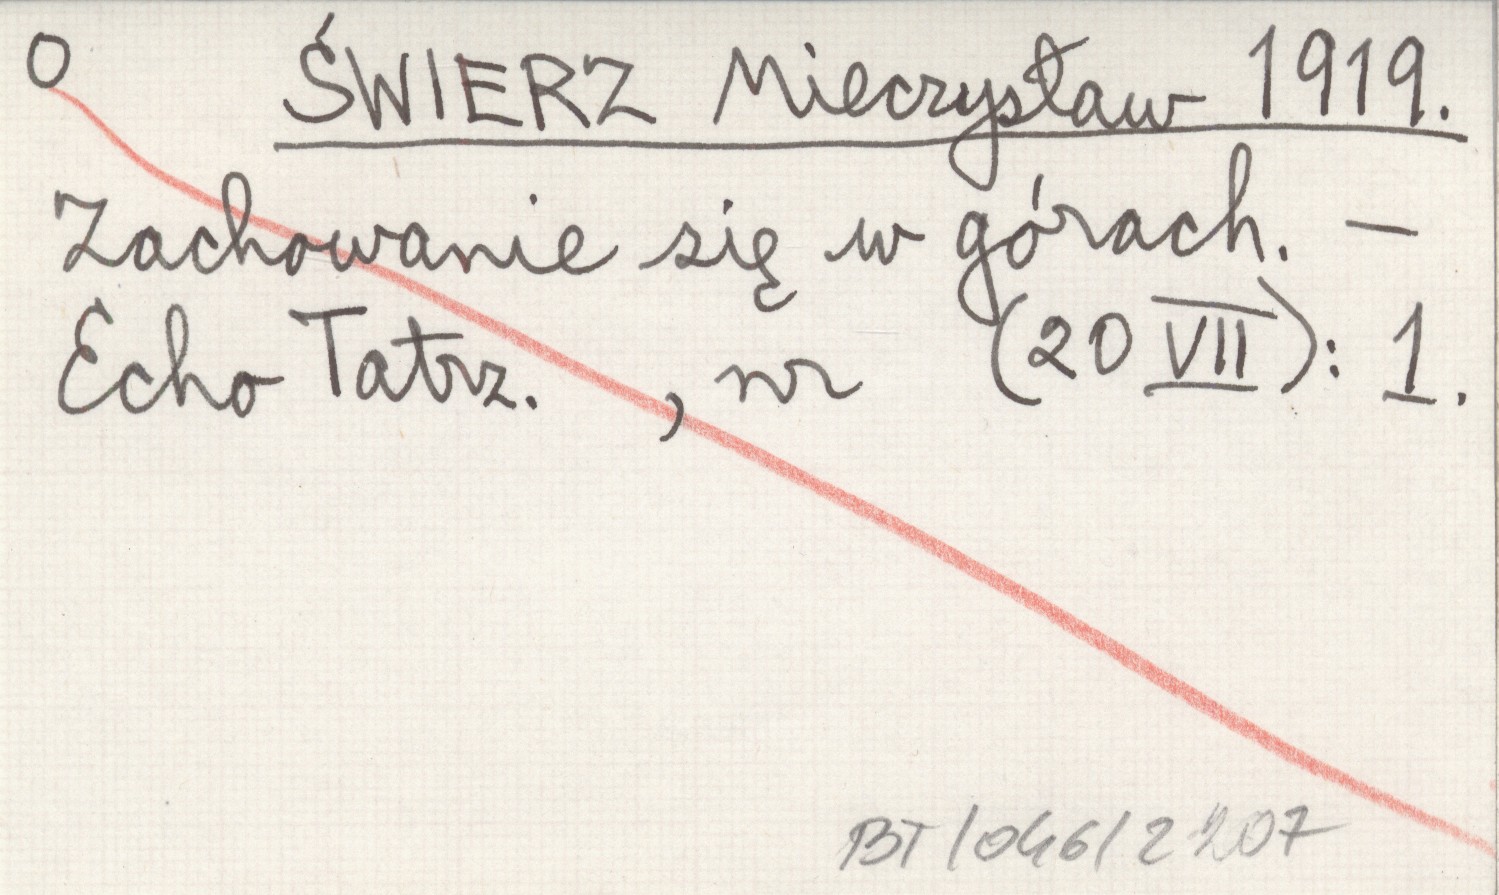 O ŚWIERZ Mieczysław 1919.
Zachowanie się w górach. —
Echo Tatrz. , nr (20 VII): 1.
BT/046/2 207